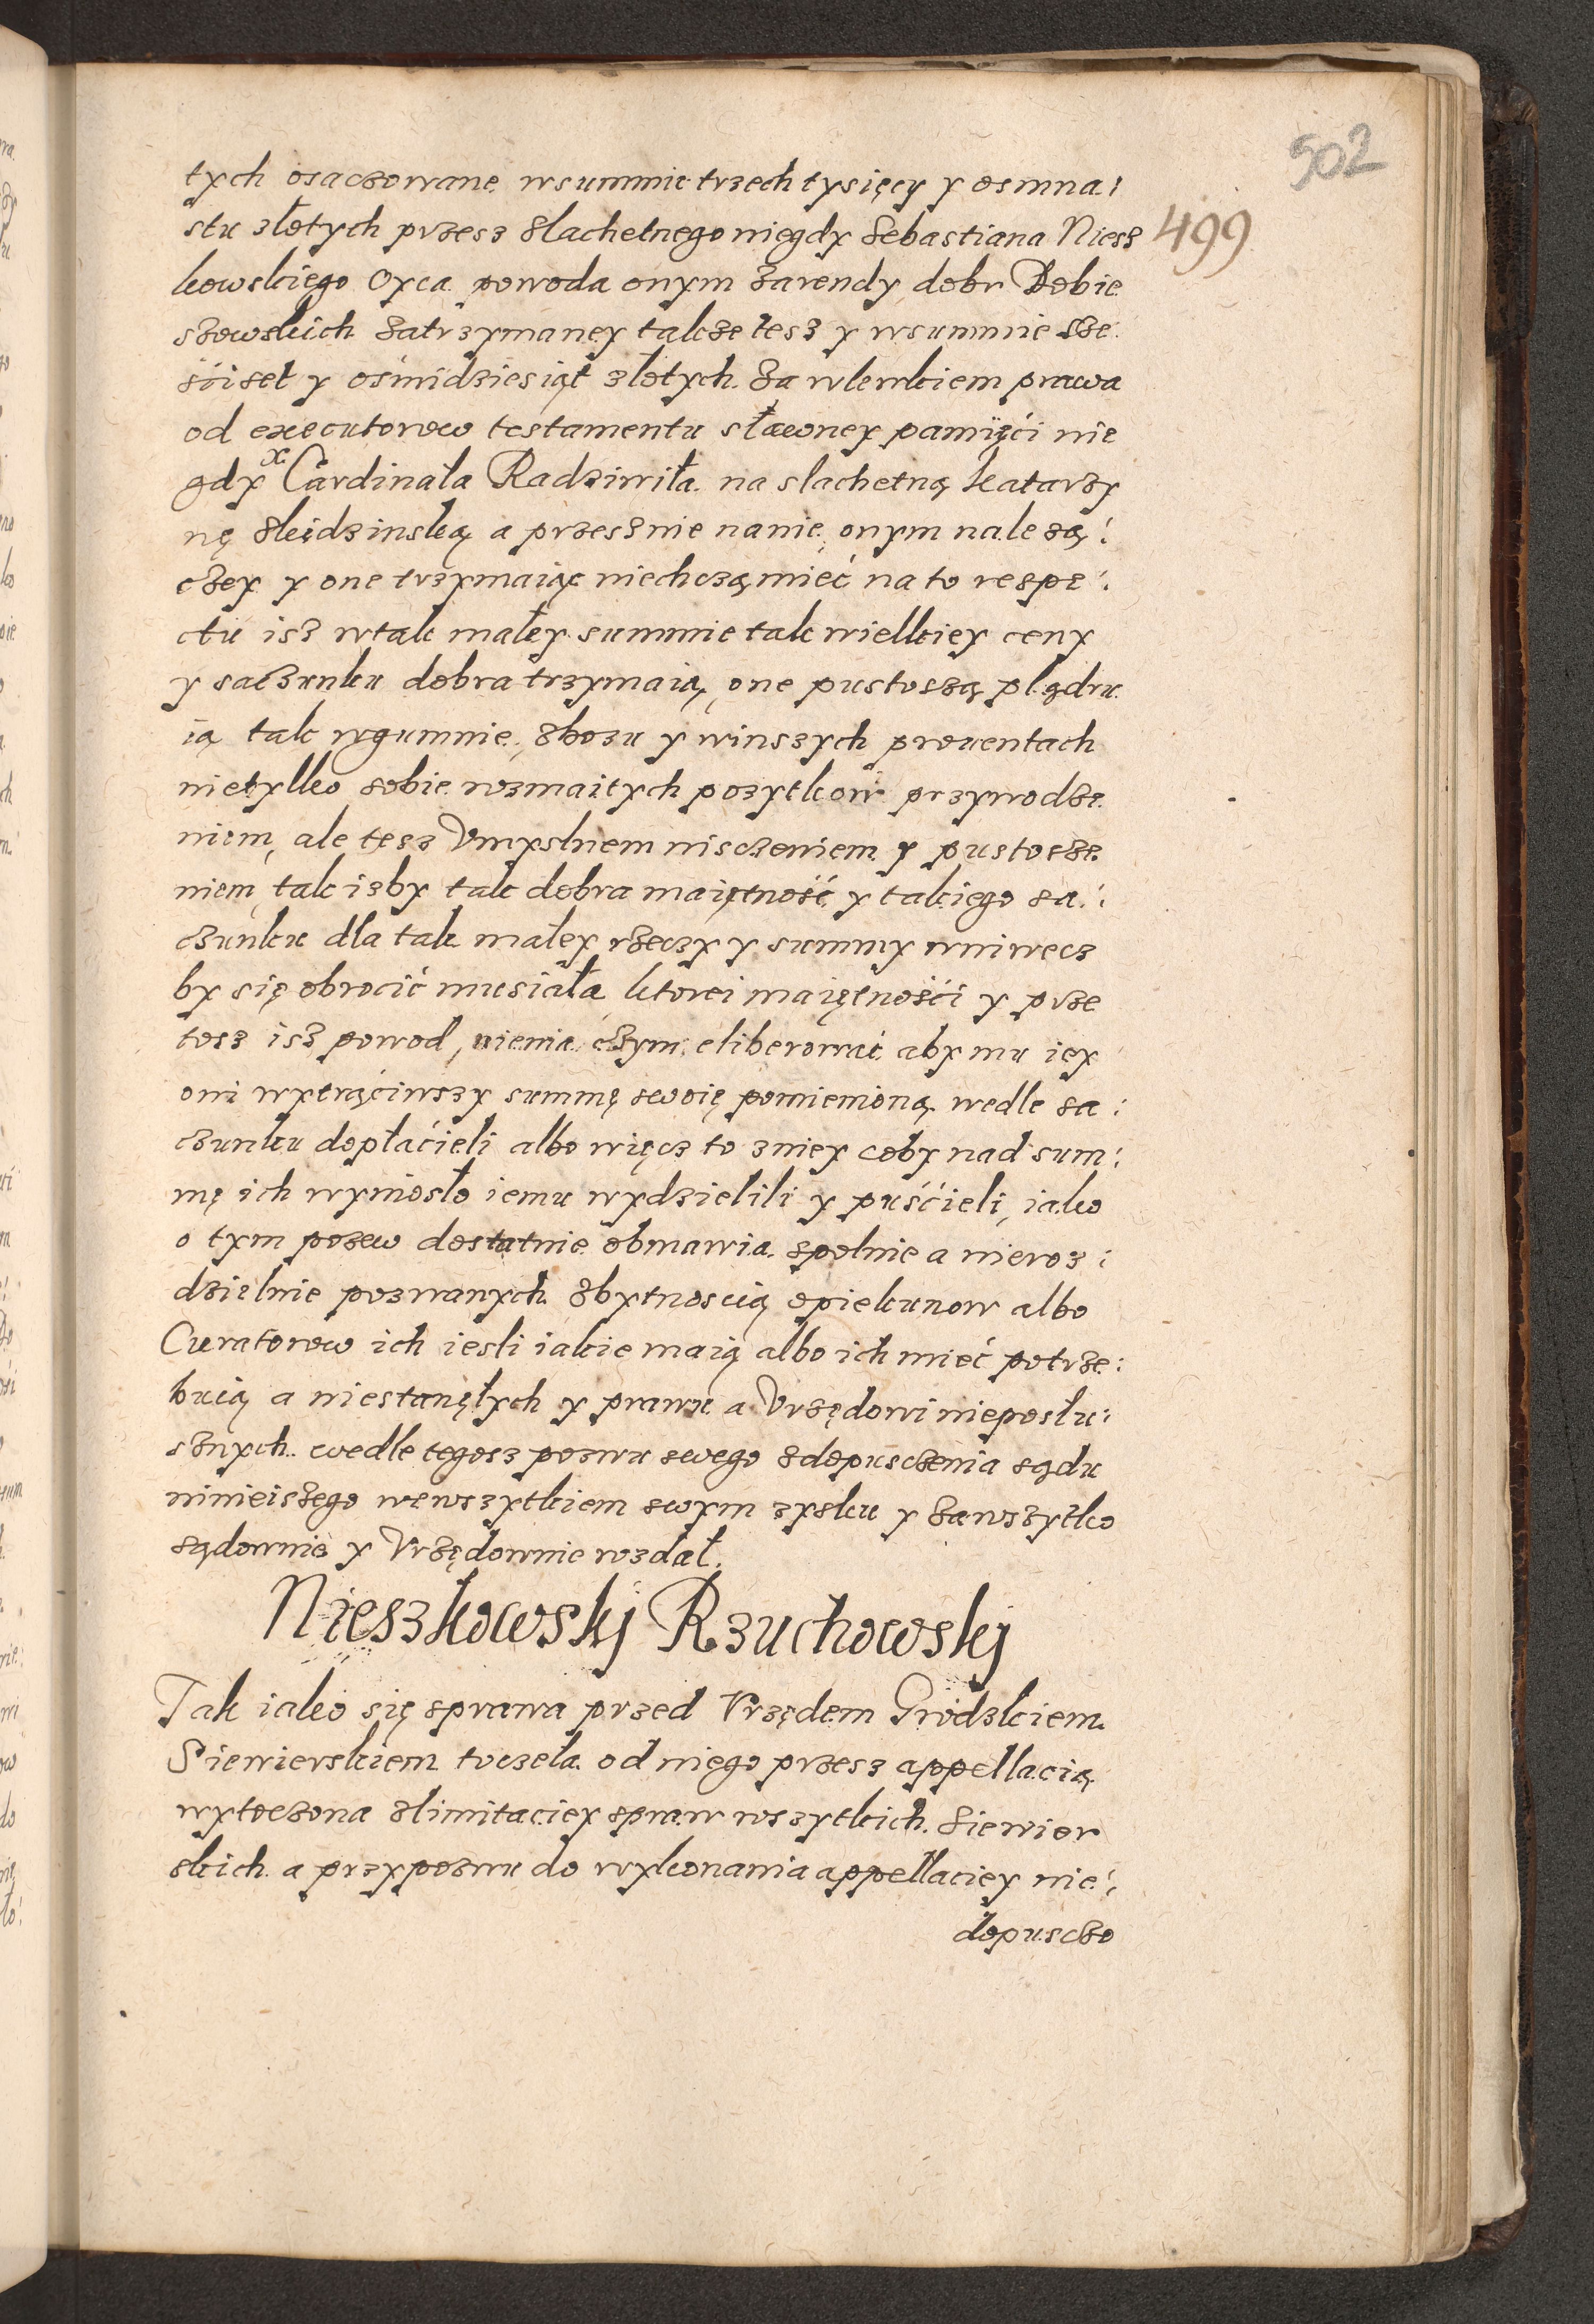 502
tych osaczowane w summie trzech tysięcy y osmna:
499
stu złotych przesz slachetnego niegdy Sebastiana Niesz
kowskiego oyca powoda onym zarendy dobr Dobie
szowskich zatrzymaney takze tesz y w summie sze:
śćiset y ośmidziesiąt złotych za wlewkiem prawa
od executorow testamentu sławney pamięći nie
gdy x Cardinała Radziwiła na slachetną Katarzy
nę Skidzinską a przesz nie na nie onym nalezą:
czey y one trzymaiąc niechczą mieć na to respe:
ctu isz w tak małey summie tak wielkiey ceny
y saczunku dobra trzymaią, one pustoszą plądru
ią tak w gumnie, zbozu y w inszych prouentach
nietylko sobie rozmaitych pozytkow przywodze
niem, ale tesz Vmyslnem nisczeniem y pustosze
niem, tak izby tak dobra maiętność y takiego sa:
czunku dla tak małey rzeczy y summy wniwecz
by się obrocić musiała ktorei maiętnośći y prze
tosz isz powod, niema czym eliberować aby mu iey
oni wytrąćiwszy summę swoię pomienioną wedle sa:
czunku dopłaćieli albo więcz to zniey coby nad sum:
mę ich wyniosło iemu wydzielili y puśćieli, iako
o tym pozew dostatnie obmawia spolnie a nieroz:
dzielnie pozwanych zbytnoscią opiekunow albo
Curatorow ich iesli iakie maią albo ich mieć potrze:
buią a niestanęłych y prawu a Vrzędowi nieposłu:
sznych wedle tegosz pozwu swego z dopusczenia sądu
ninieiszego wewszytkiem swym zysku y zawszytko
sądownie y Vrzędownie wzdał.
Nieszkowskj Rzuchowskj
Tak iako się sprawa przed Vrzędem Grodzkiem
Siewierskiem toczeła od niego przesz appellacią
wytoczona z limitaciey spraw wszytkich Siewier
skich a przypozwu do wykonania appellaciey nie:
dopusczo